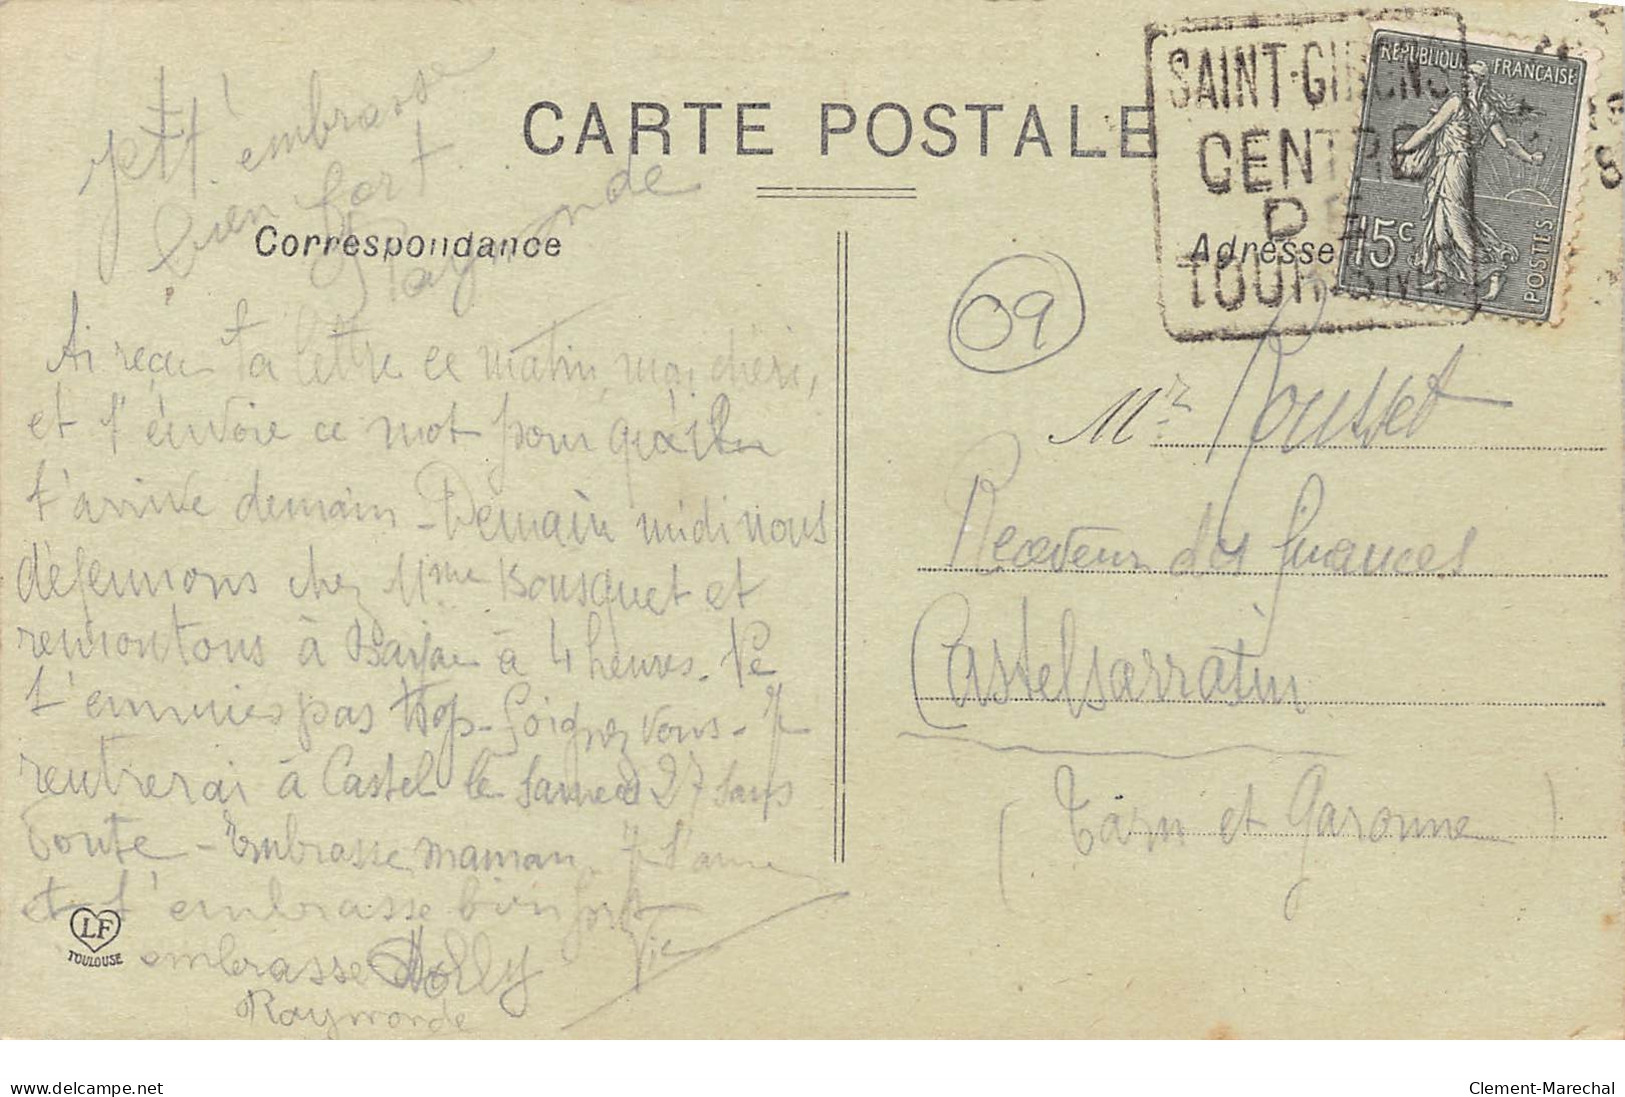 CARTE POSTALE
Correspondance
Adresse
SAINT-GIRONS
CENTRE
DE
TOURISME
REPUBLIQUE FRANÇAISE
15c
POSTES
09
t'embrasse
bien fort
Raymonde
Ai reçu ta lettre ce matin, moi chéri,
et t'envoie ce mot pour qu'il
t'arrive demain - Demain midi nous
déjeunons chez Mme Bousquet et
remontons à à 4 heures. Ne
t'ennuies pas trop - Soignez vous - Je
rentrerai à Castel le samedi 27 sans
doute - Embrasse maman. Je t'aime
et t'embrasse bien fort
Vic
embrasse Dolly
Raymonde
LF
TOULOUSE
Mr Rousset
Receveur des finances
Castelsarrasin
(Tarn et Garonne)
www.delcampe.net
Clement-Marechal